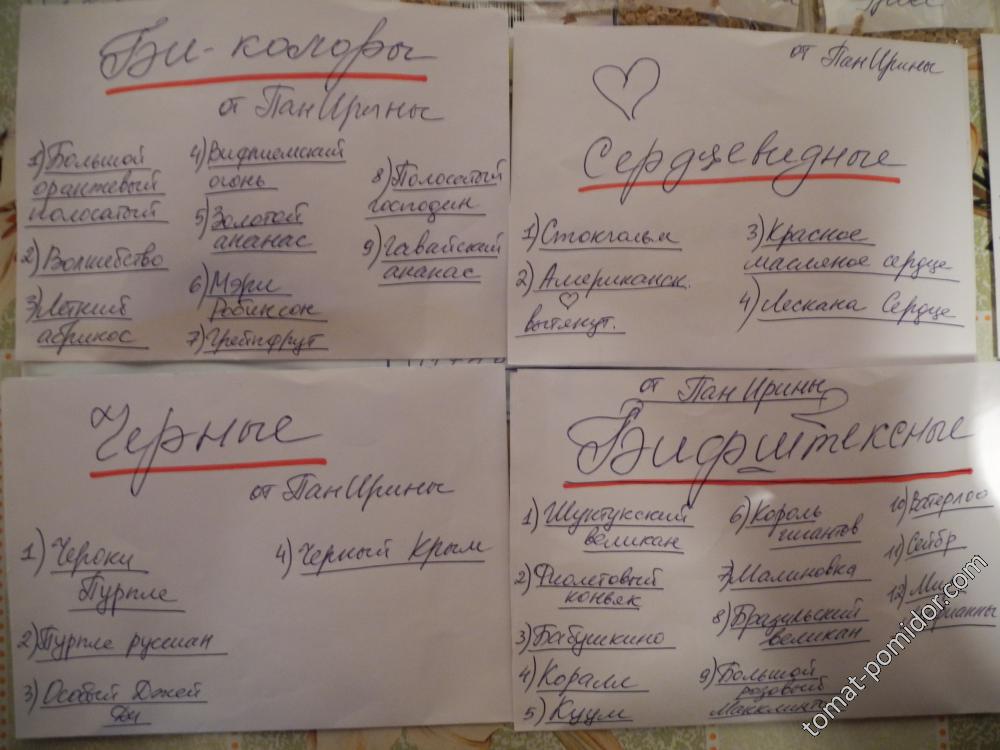 Би-колоры
от ПанИрины
1) Большой
оранжевый
полосатый
2) Волшебство
3) Летний
абрикос
4) Вифлиемский
огонь
5) Золотой
ананас
6) Мэри
Робинсон
7) Грейпфрут
8) Полосатый
господин
9) Гавайский
ананас
от ПанИрины
Сердцевидные
1) Стокгольм
2) Американск.
вытянут.
3) Красное
масляное сердце
4) Лескана Сердце
Черные
от ПанИрины
1) Чероки
Пурпле
2) Пурпле руссиан
3) Особый Джей
Ди
4) Черный Крым
от ПанИрины
Бифштексные
1) Шунтукский
великан
2) Фиолетовый
коньяк
3) Бабушкино
4) Коралл
5) Куум
6) Король
гигантов
7) Малиновка
8) Бразильский
великан
9) Большой
розовый
10) Ватерлоо
11) Сейбр
12)
tomat-pomidor.com